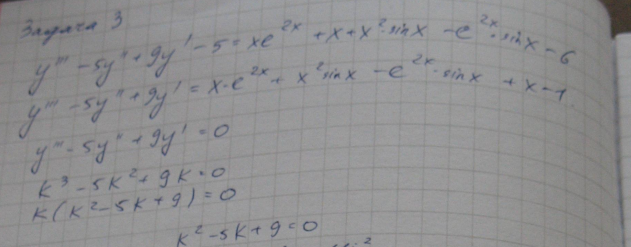 Задача 3
y''' - 5y'' + 9y' - 5 = xe^{2x} + x + x^2·sinx - e^{2x}·sinx - 6
y''' - 5y'' + 9y' = x·e^{2x} + x^2 sinx - e^{2x}·sinx + x - 1
y''' - 5y'' + 9y' = 0
k^3 - 5k^2 + 9k = 0
k(k^2 - 5k + 9) = 0
k^2 - 5k + 9 = 0